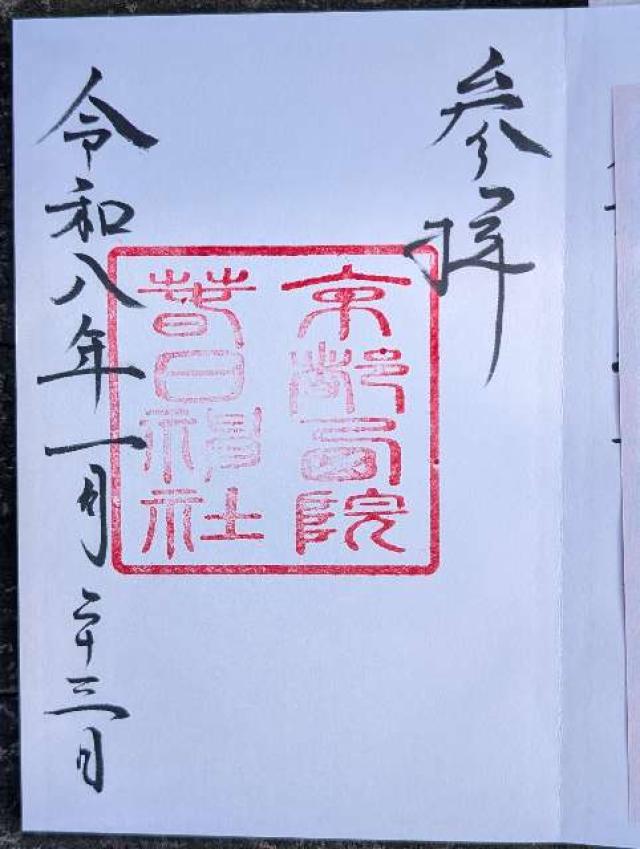 参拝
京都西院
春日神社
令和八年一月二十三日